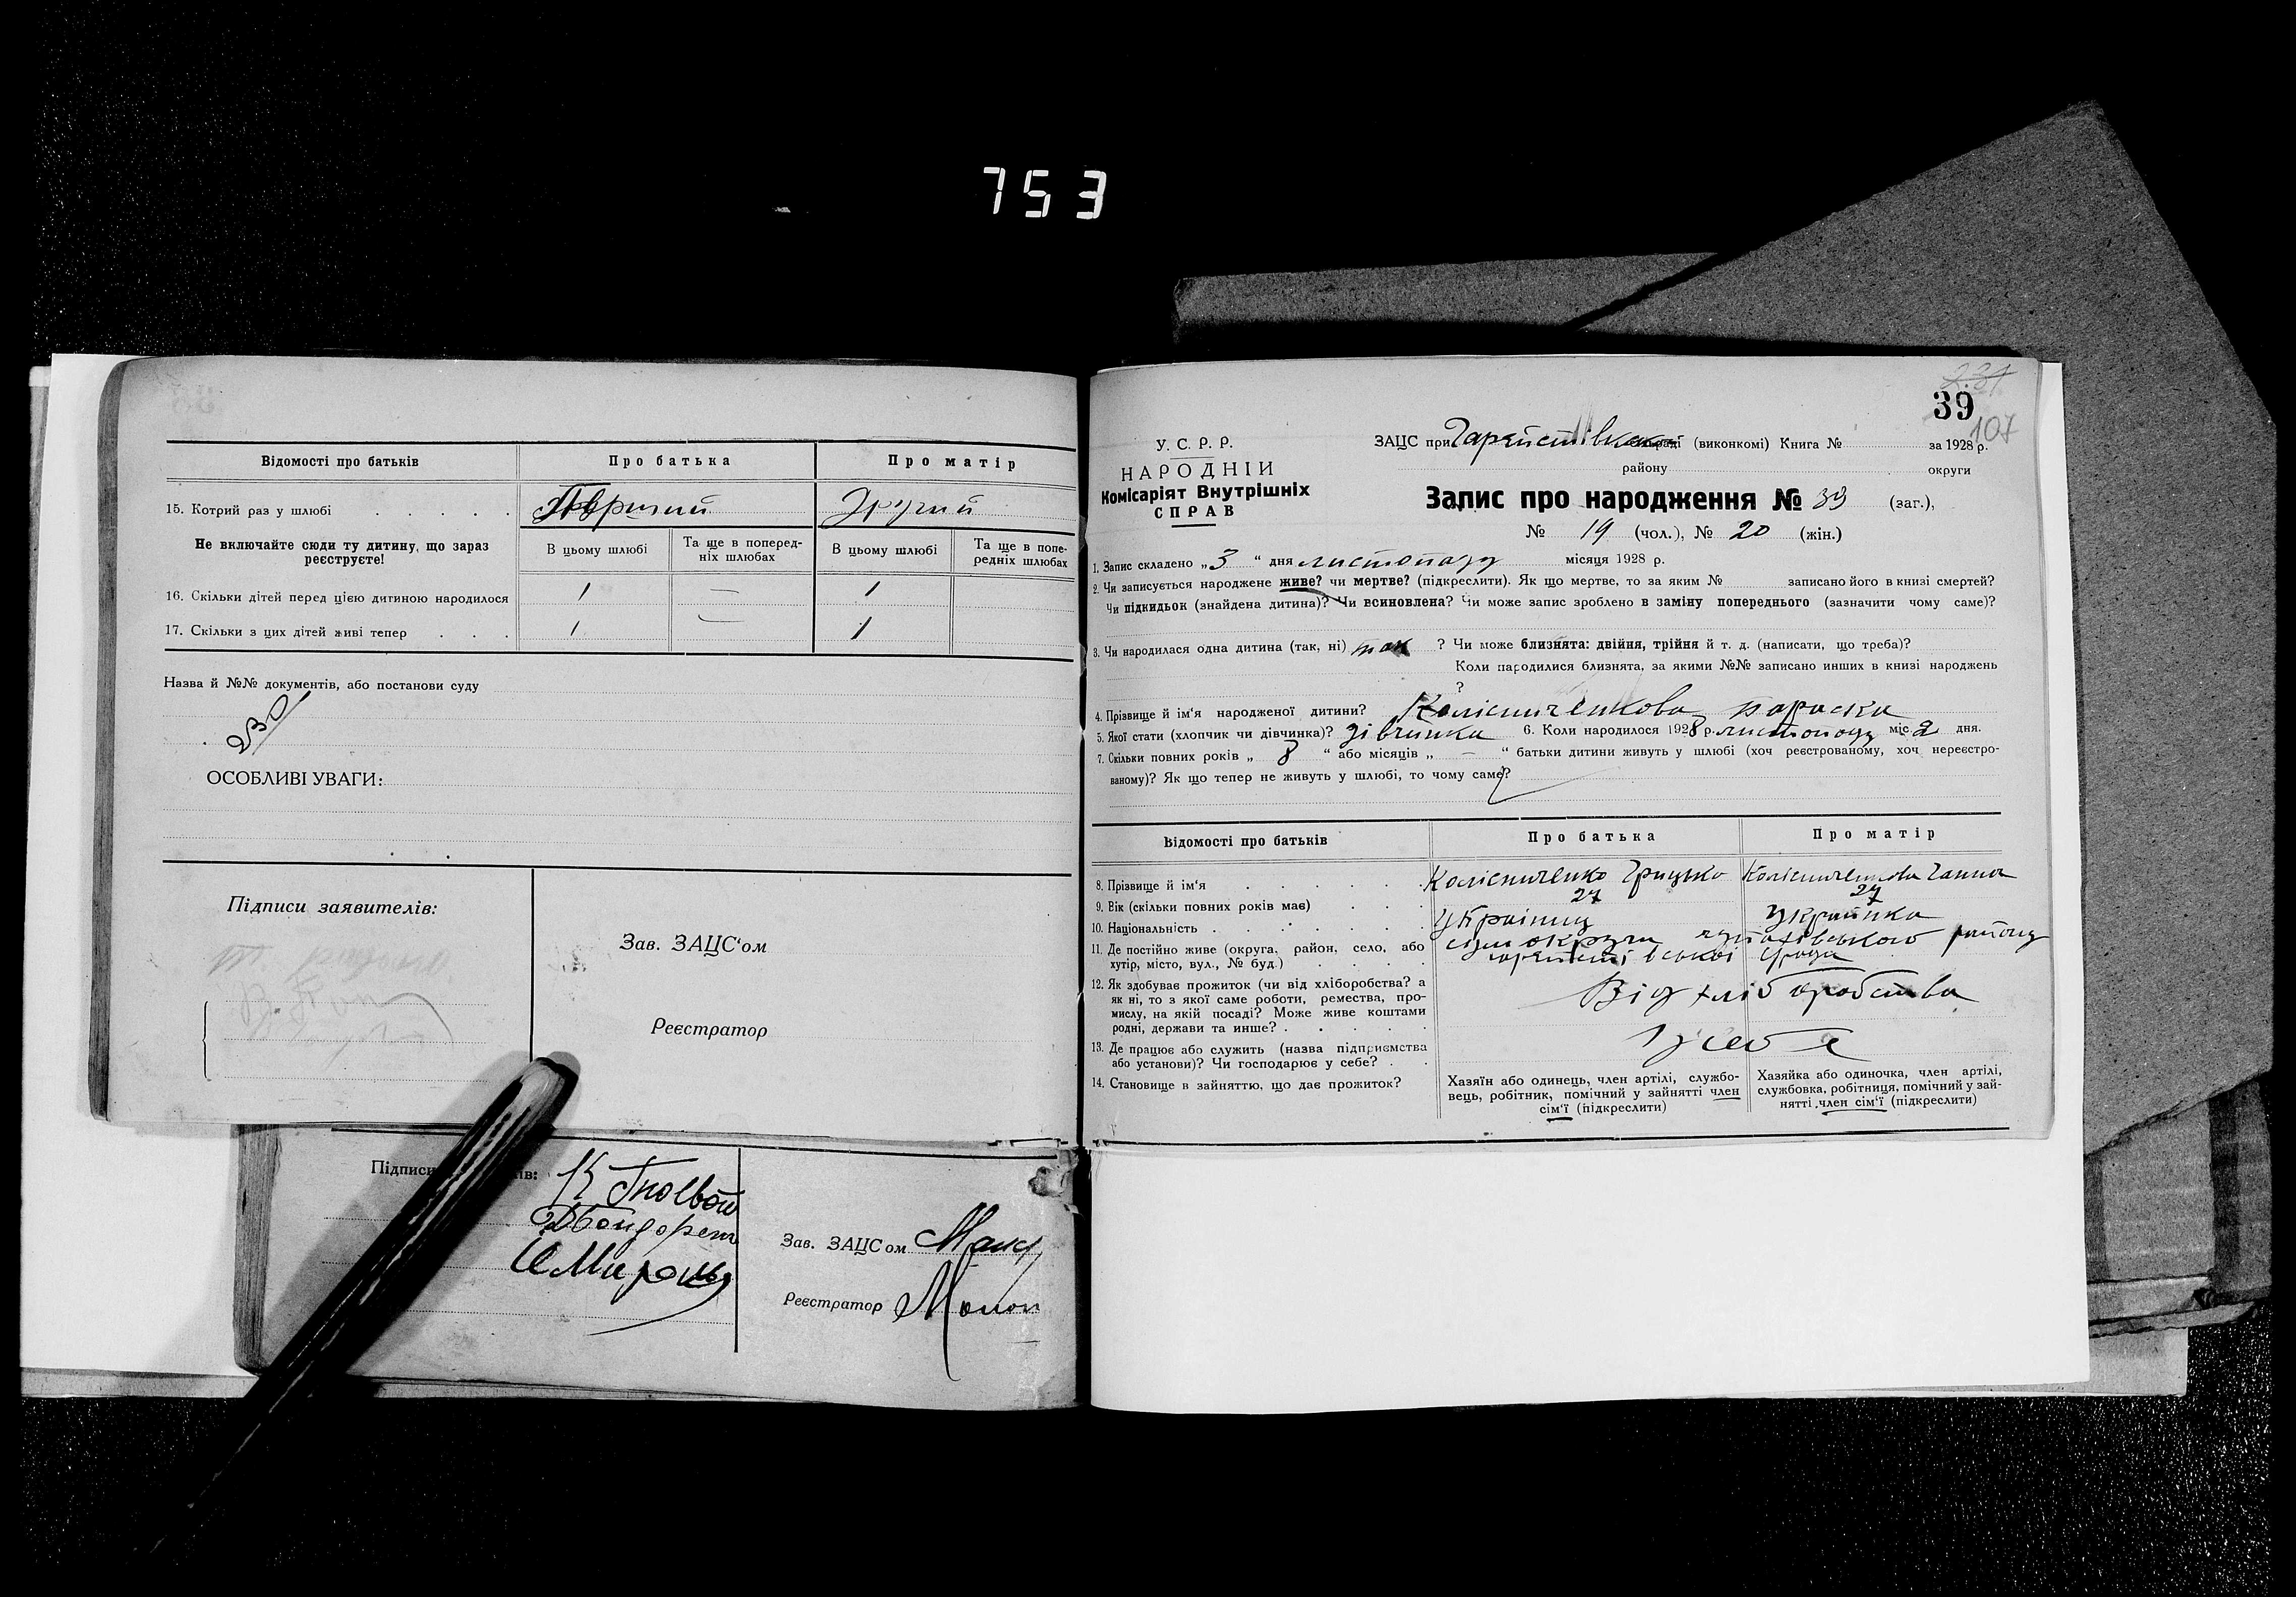 753
Відомості про батьків Про батька Про матір
15. Котрий раз у шлюбі Перший Другий
Не включайте сюди ту дитину, що зараз реєструєте!
В цьому шлюбі Та ще в попередніх шлюбах В цьому шлюбі Та ще в попередніх шлюбах
16. Скільки дітей перед цією дитиною народилося 1 — 1
17. Скільки з цих дітей живі тепер 1 — 1
Назва й №№ документів, або постанови суду
230/
ОСОБЛИВІ УВАГИ:
Підписи заявителів:
Зав. ЗАЦС‘ом
Реєстратор
Підписи ів:
Зав. ЗАЦСом
Реєстратор
231
39
107
У. С. Р. Р.
НАРОДНІЙ
Комісаріят Внутрішніх
СПРАВ
ЗАЦС при (виконкомі) Книга № за 1928 р.
району округи
Запис про народження № 39 (заг.),
№ 19 (чол.), № 20 (жін.)
1. Запис складено „3“ дня листопаду місяця 1928 р.
2. Чи записується народжене живе? чи мертве? (підкреслити). Як що мертве, то за яким № записано його в книзі смертей?
Чи підкидьок (знайдена дитина)? Чи всиновлена? Чи може запис зроблено в заміну попереднього (зазначити чому саме)?
3. Чи народилася одна дитина (так, ні) так ? Чи може близнята: двійня, трійня й т. д. (написати, що треба)?
Коли народилися близнята, за якими №№ записано инших в книзі народжень
?
4. Прізвище й ім‘я народженої дитини? Колісниченкова Параска
5. Якої стати (хлопчик чи дівчинка)? дівчинка 6. Коли народилося 1928 р. листопаду міс 2 дня.
7. Скільки повних років „ 8 “ або місяців „ — “ батьки дитини живуть у шлюбі (хоч реєстрованому, хоч нереєстро-
ваному)? Як що тепер не живуть у шлюбі, то чому саме?
Відомості про батьків Про батька Про матір
8. Прізвище й ім‘я Колісниченко Грицько Колісниченкова Ганна
9. Вік (скільки повних років має) 27 27
10. Національність Українец Українка
11. Де постійно живе (округа, район, село, або
хутір, місто, вул., № буд.) округи району
12. Як здобуває прожиток (чи від хліборобства? а
як ні, то з якої саме роботи, ремества, про-
мислу, на якій посаді? Може живе коштами
родні, держави та инше?
Від хліборобства
13. Де працює або служить (назва підприємства
або установи)? Чи господарює у себе?
У себе
14. Становище в зайняттю, що дає прожиток?
Хазяїн або одинець, член артілі, службо-
вець, робітник, помічний у зайнятті член
сім‘ї (підкреслити)
Хазяйка або одиночка, член артілі,
службовка, робітниця, помічний у зай-
нятті, член сім‘ї (підкреслити)